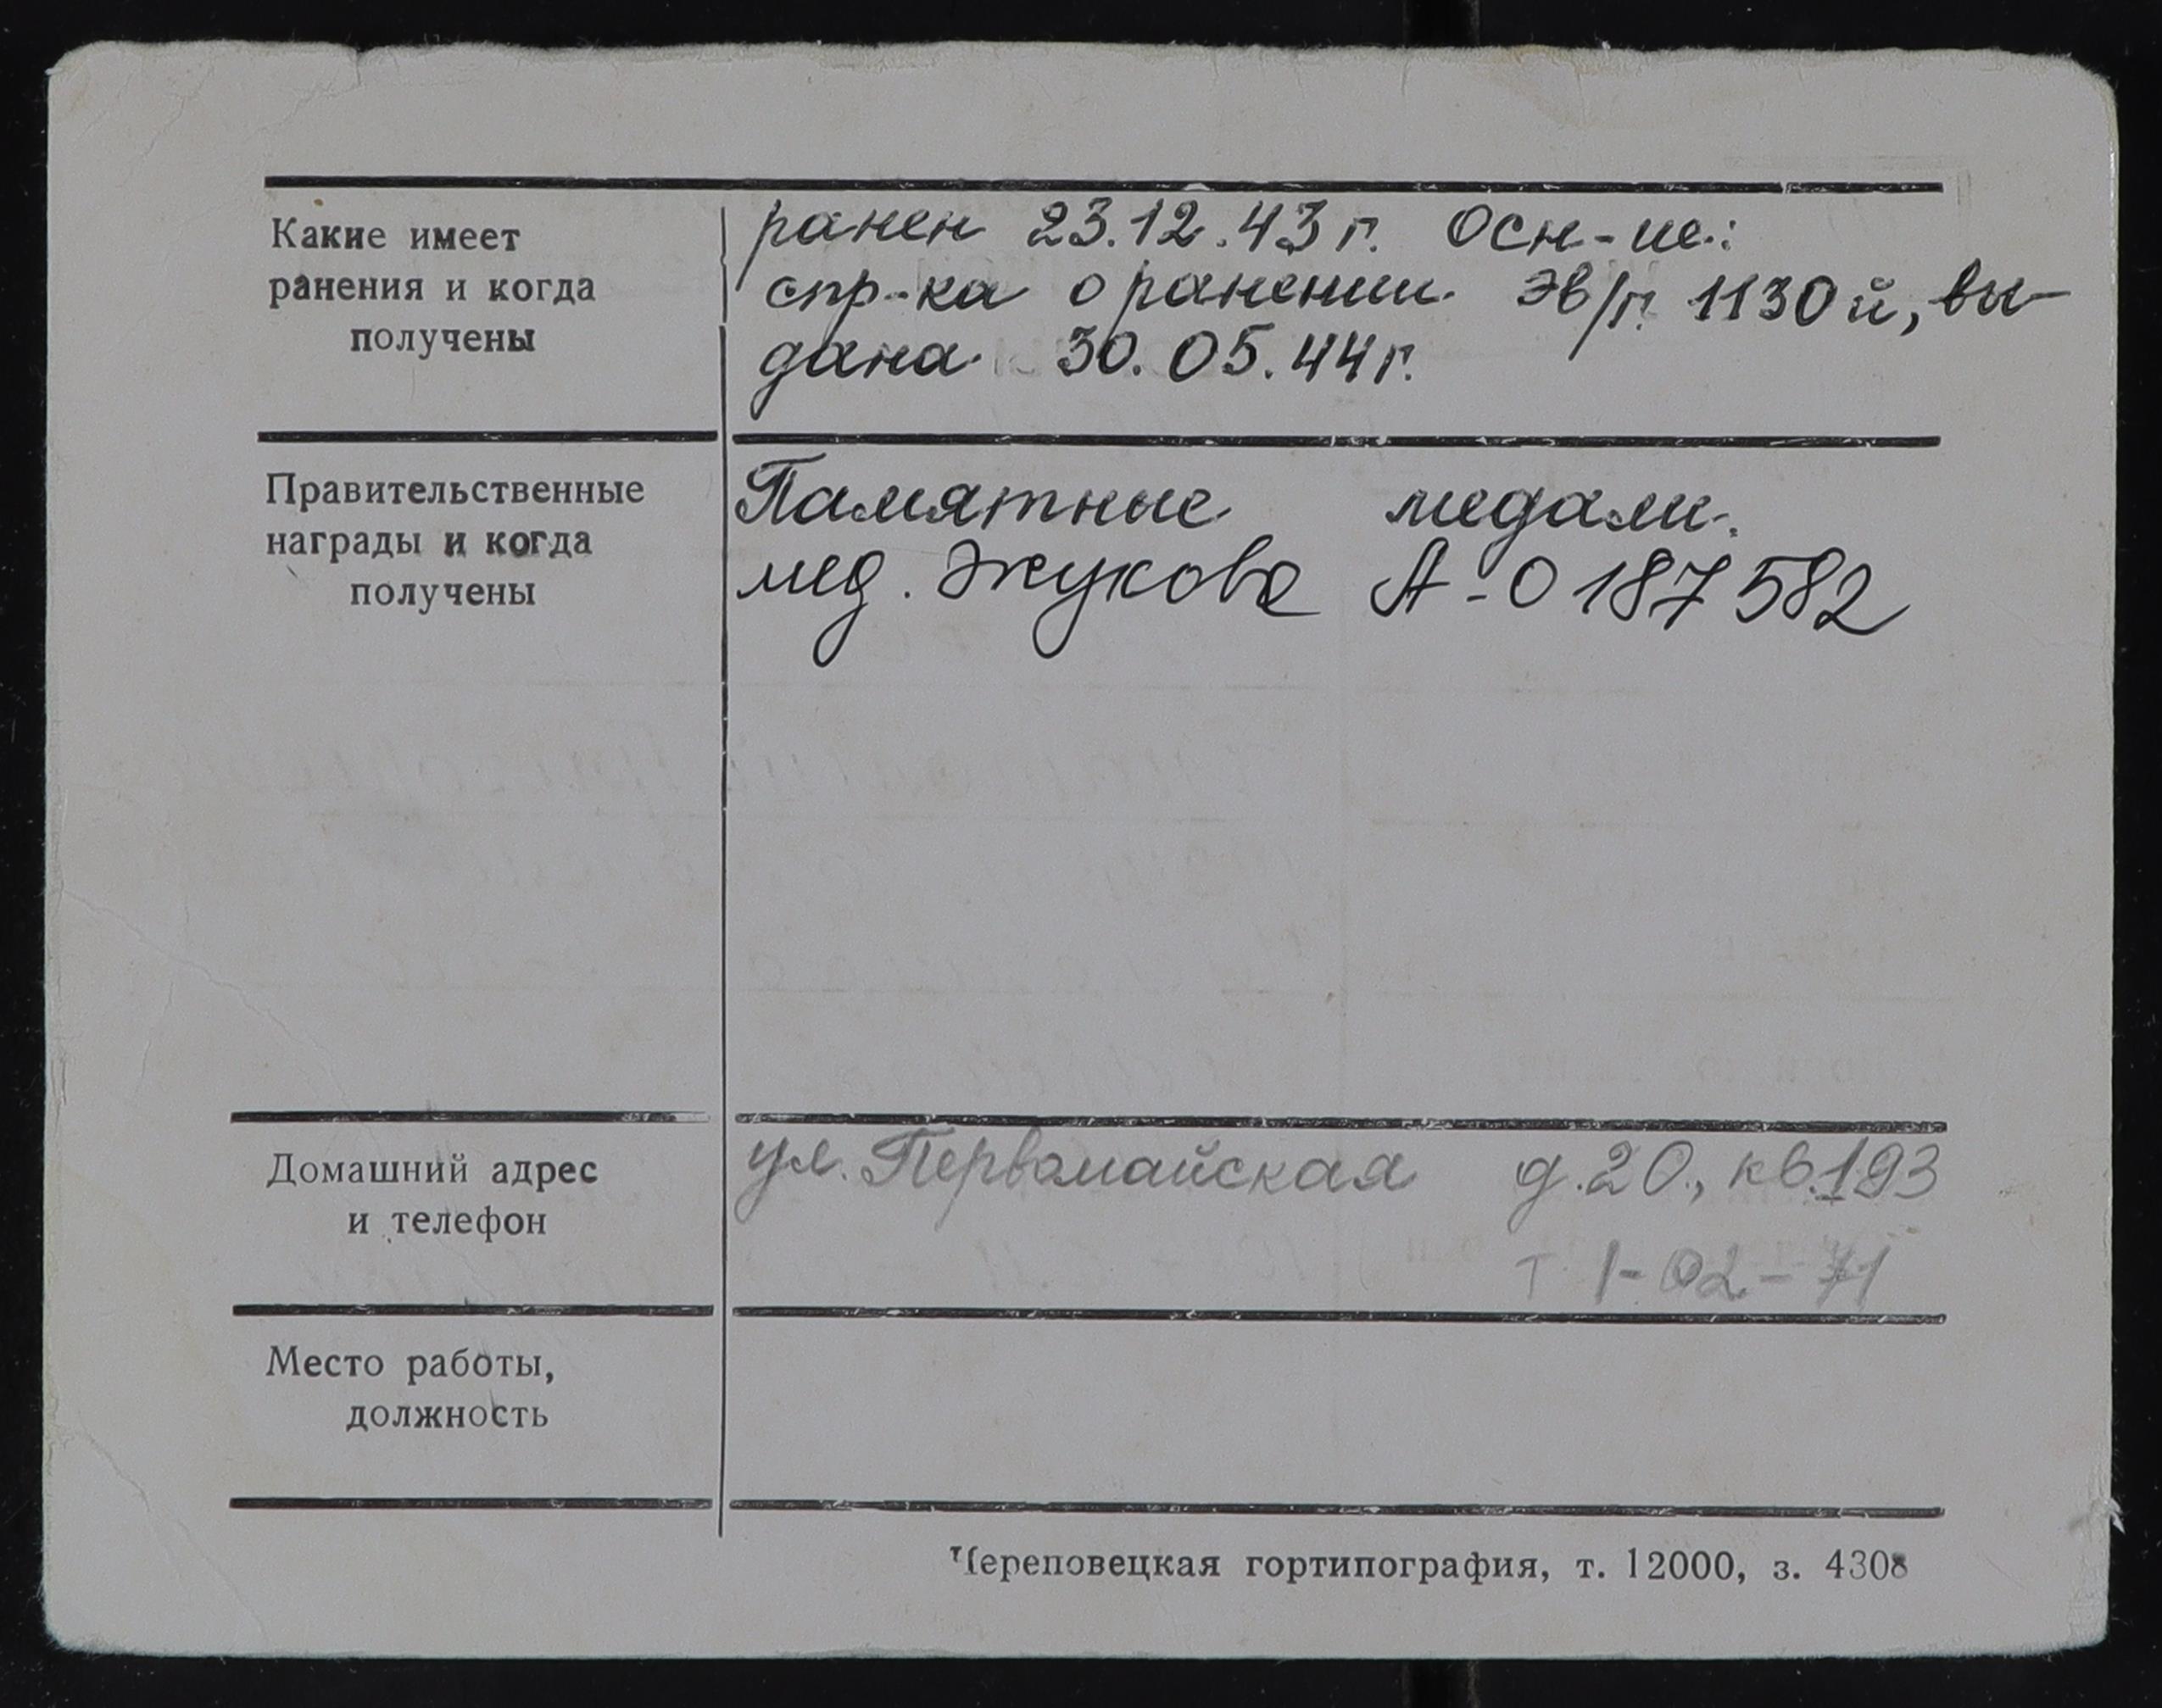 Какие имеет
ранения и когда
получены
ранен 23.12.43 г. Осн-ие:
спр-ка о ранении эв/г. 1130й, вы-
дана 30.05.44 г.
Правительственные
награды и когда
получены
Памятные медали.
мед. Жукова А-0187582
Домашний адрес
и телефон
ул. Первомайская д.20., кв.193
т. 1-02-71
Место работы,
должность
Череповецкая гортипография, т. 12000, з. 4308